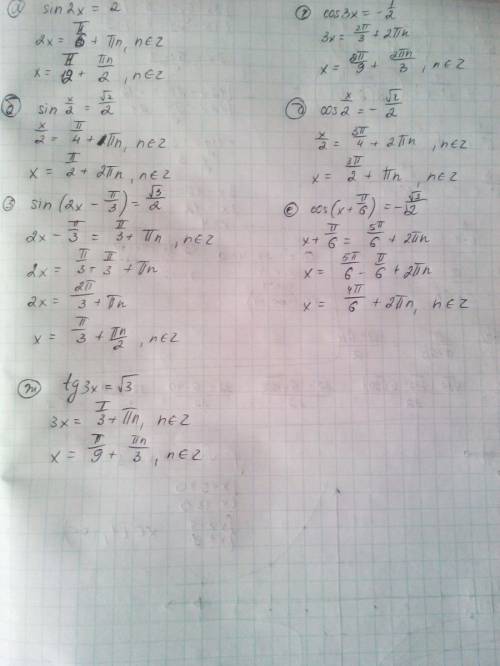 а) sin 2x = 2
2x = π/6 + πn, n∈z
x = π/12 + πn/2, n∈z
б) sin x/2 = √2/2
x/2 = π/4 + πn, n∈z
x = π/2 + 2πn, n∈z
3) sin (2x - π/3) = √3/2
2x - π/3 = π/3 + πn, n∈z
2x = π/3 + π/3 + πn
2x = 2π/3 + πn
x = π/3 + πn/2, n∈z
ж) tg 3x = √3
3x = π/3 + πn, n∈z
x = π/9 + πn/3, n∈z
г) cos 3x = - 1/2
3x = 2π/3 + 2πn
x = 2π/9 + 2πn/3, n∈z
д) cos x/2 = - √2/2
x/2 = 3π/4 + 2πn, n∈z
x = 3π/2 + πn, n∈z
е) cos (x + π/6) = - √3/2
x + π/6 = 5π/6 + 2πn
x = 5π/6 - π/6 + 2πn
x = 4π/6 + 2πn, n∈z